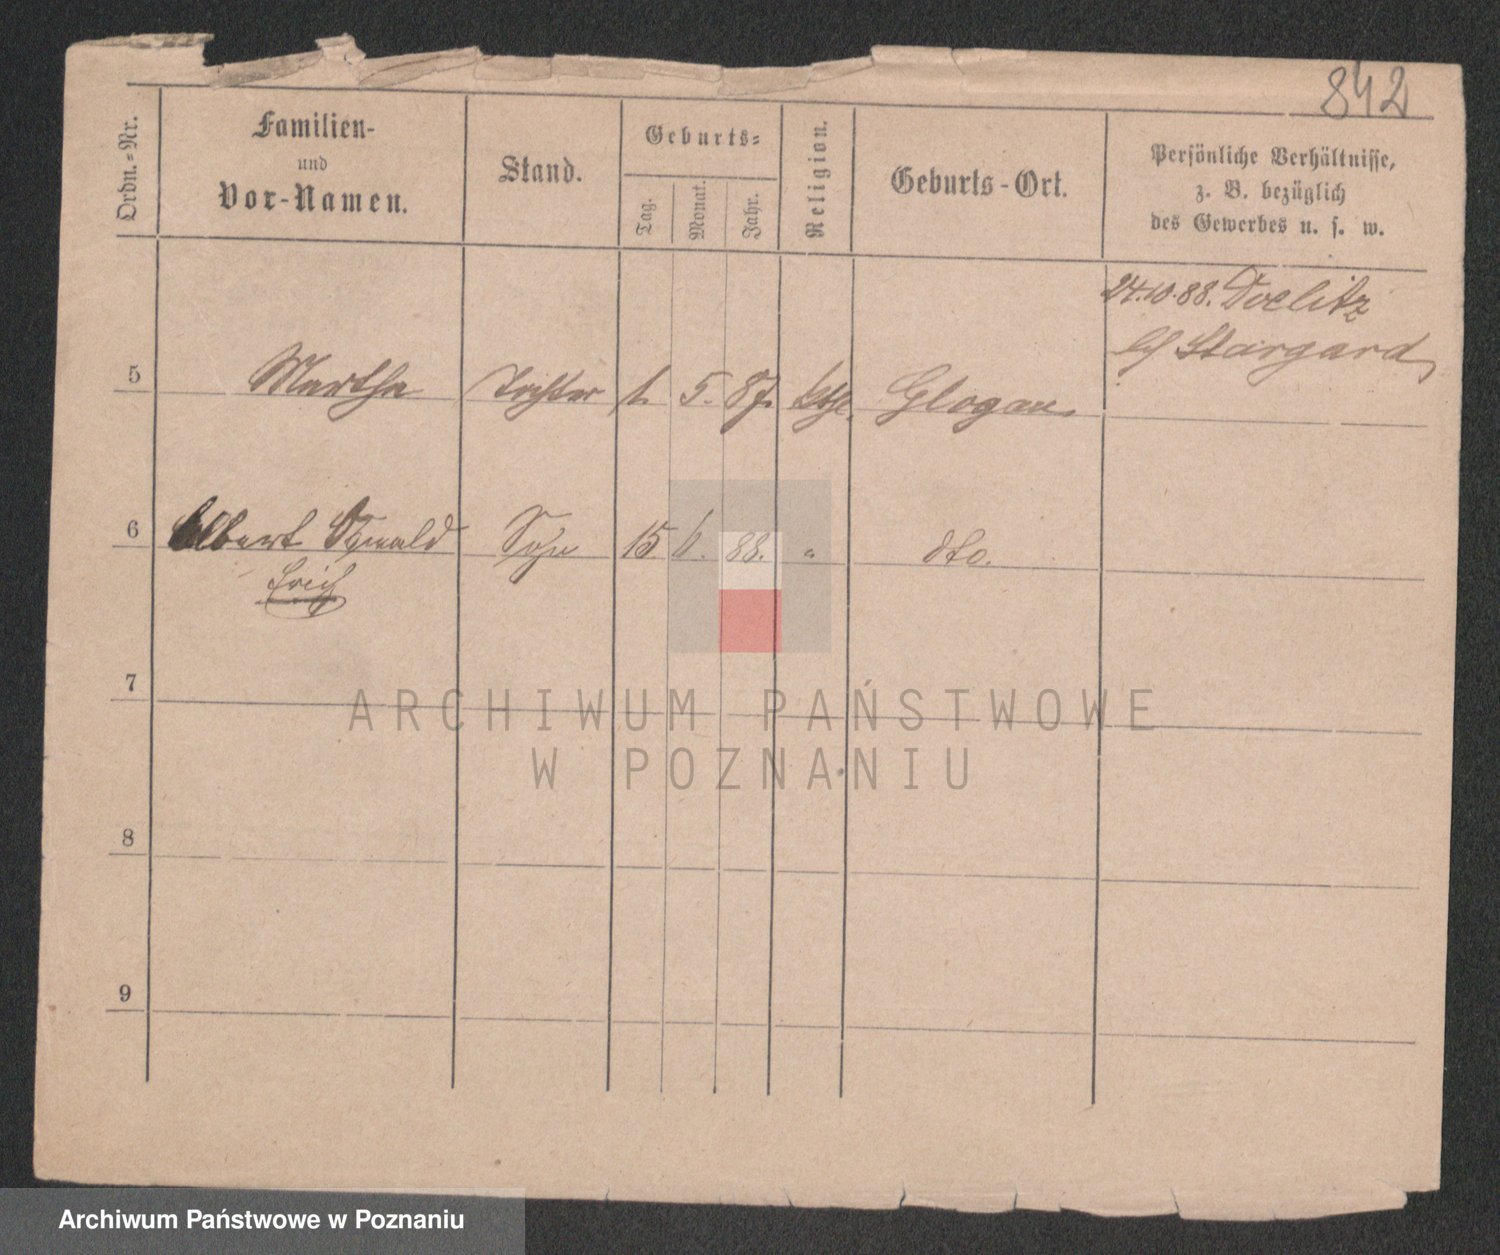 842
Ordn.-Nr.
Familien-
und
Vor-Namen.
Stand.
Geburts-
Tag.
Monat.
Jahr.
Religion.
Geburts-Ort.
Persönliche Verhältnisse,
z. B. bezüglich
des Gewerbes u. s. w.
24.10.88. Doelitz
Stargard
5 Martha Tochter 1. 5. 87. Glogau.
6 Albert Oswald Sohn 15 6. 88. " dto.
Erich
7
8
9
ARCHIWUM PAŃSTWOWE
W POZNANIU
Archiwum Państwowe w Poznaniu